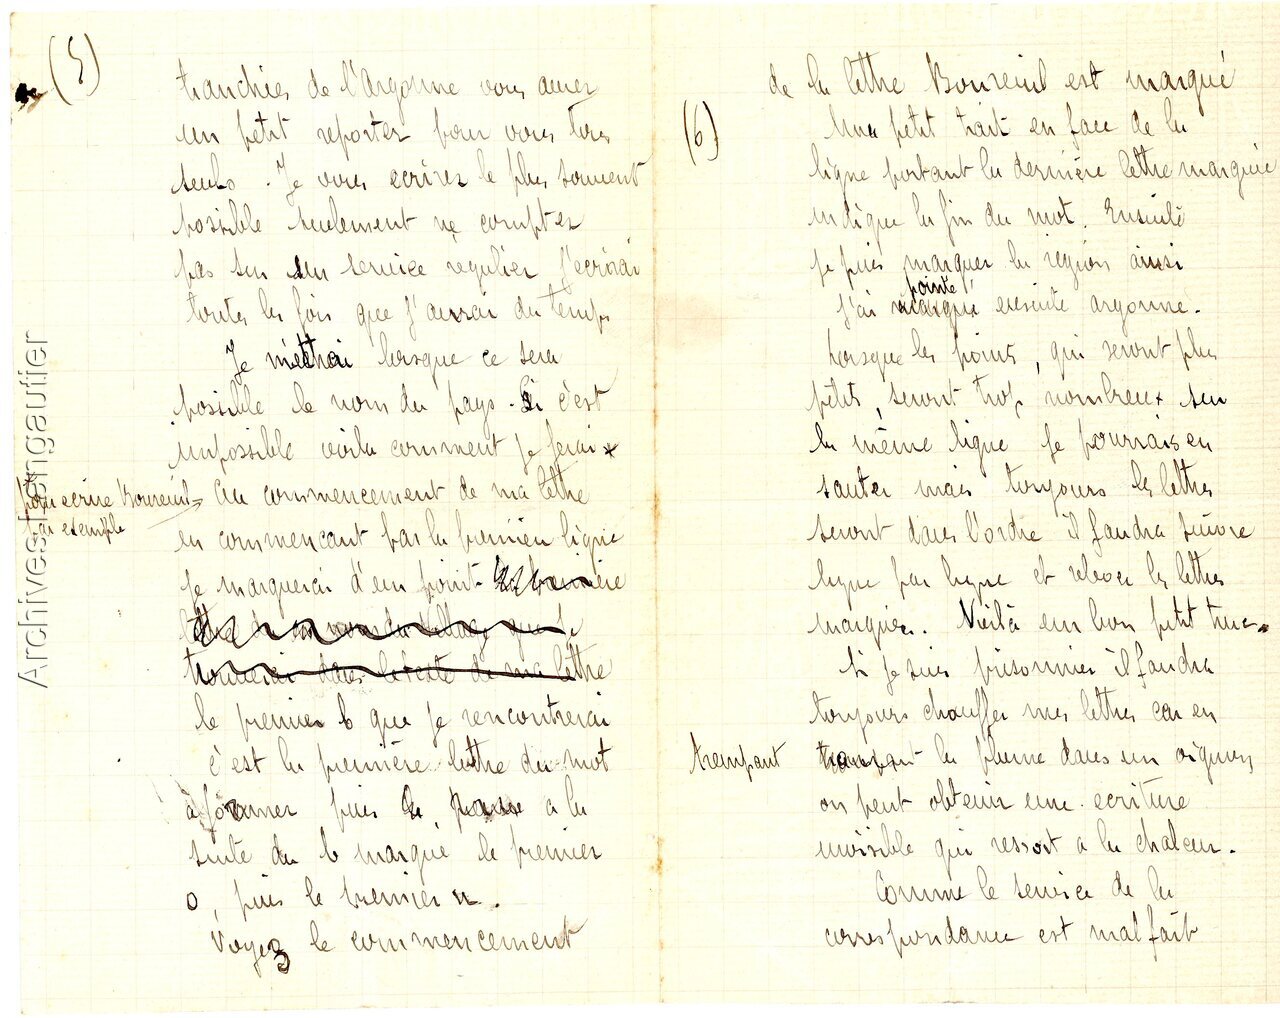 (5)
tranchées de l'Argonne vous aurez
un petit reporter pour vous tous
seuls. Je vous ecrirez le plus souvent
possible seulement ne comptez
pas sur un service regulier j'ecrirai
toutes les fois que j'aurai du temps
Je mettrai lorsque ce sera
possible le nom du pays. Si c'est
impossible voila comment je ferai
pour ecrire Boureuil
par exemple
Au commencement de ma lettre
en commencant par la premiere ligne
je marquerai d'un point la premiere
lettre du nom du village que je
trouverai dans le texte de ma lettre
le premier b que je rencontrerai
c'est la première lettre du mot
à former puis je passe a la
suite du b marqué le premier
o, puis le premier u.
Voyez le commencement
(6)
de la lettre Boureuil est marqué
Un petit trait en face de la
ligne portant la dernière lettre marquée
indique la fin du mot. Ensuite
je puis marquer la région ainsi
pointé
j'ai marqué ensuite argonne.
Lorsque les points, qui seront plus
petits, seront trop nombreux sur
la même ligne je pourrais en
sauter mais toujours les lettres
seront dans l'ordre il faudra suivre
ligne par ligne et relever les lettres
marquées. Voilà un bon petit truc.
Si je suis prisonnier il faudra
toujours chauffer mes lettres car en
trempant
trempant la plume dans un oignon
on peut obtenir une ecriture
invisible qui ressort a la chaleur.
Comme le service de la
correspondance est mal fait
Archives Fengautier